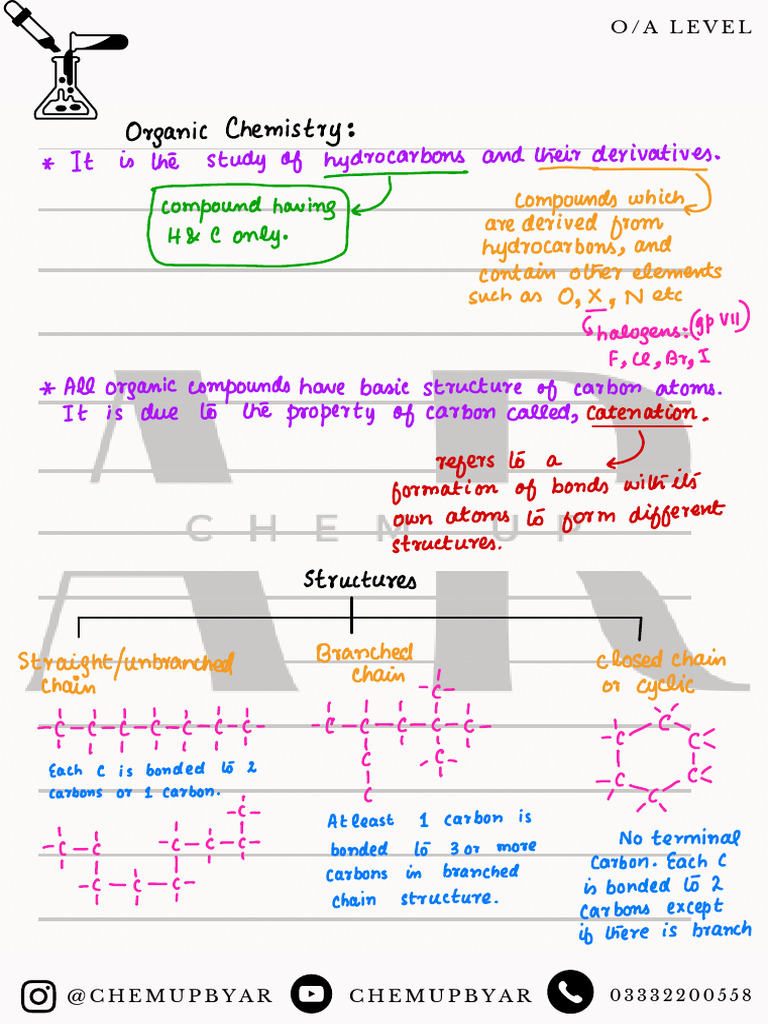 O/A LEVEL
Organic Chemistry:
* It is the study of hydrocarbons and their derivatives.
compound having
H & C only.
Compounds which
are derived from
hydrocarbons, and
contain other elements
such as O, X, N etc
halogens: (gp VII)
F, Cl, Br, I
* All organic compounds have basic structure of carbon atoms.
It is due to the property of carbon called, catenation.
refers to a
formation of bonds with its
own atoms to form different
structures.
AR
CHEM UP
AR
Structures
Straight/unbranched
chain
Branched
chain
closed chain
or cyclic
-C-C-C-C-C-C-C-
Each C is bonded to 2
carbons or 1 carbon.
-C-
-C-C-C-C-C-
C
-C-
C
C
C
C
C
C
C
-C-
-C-C
-C-C-C-
-C-C-C-
Atleast 1 carbon is
bonded to 3 or more
carbons in branched
chain structure.
No terminal
carbon. Each C
is bonded to 2
carbons except
if there is branch
@CHEMUPBYAR
CHEMUPBYAR
03332200558